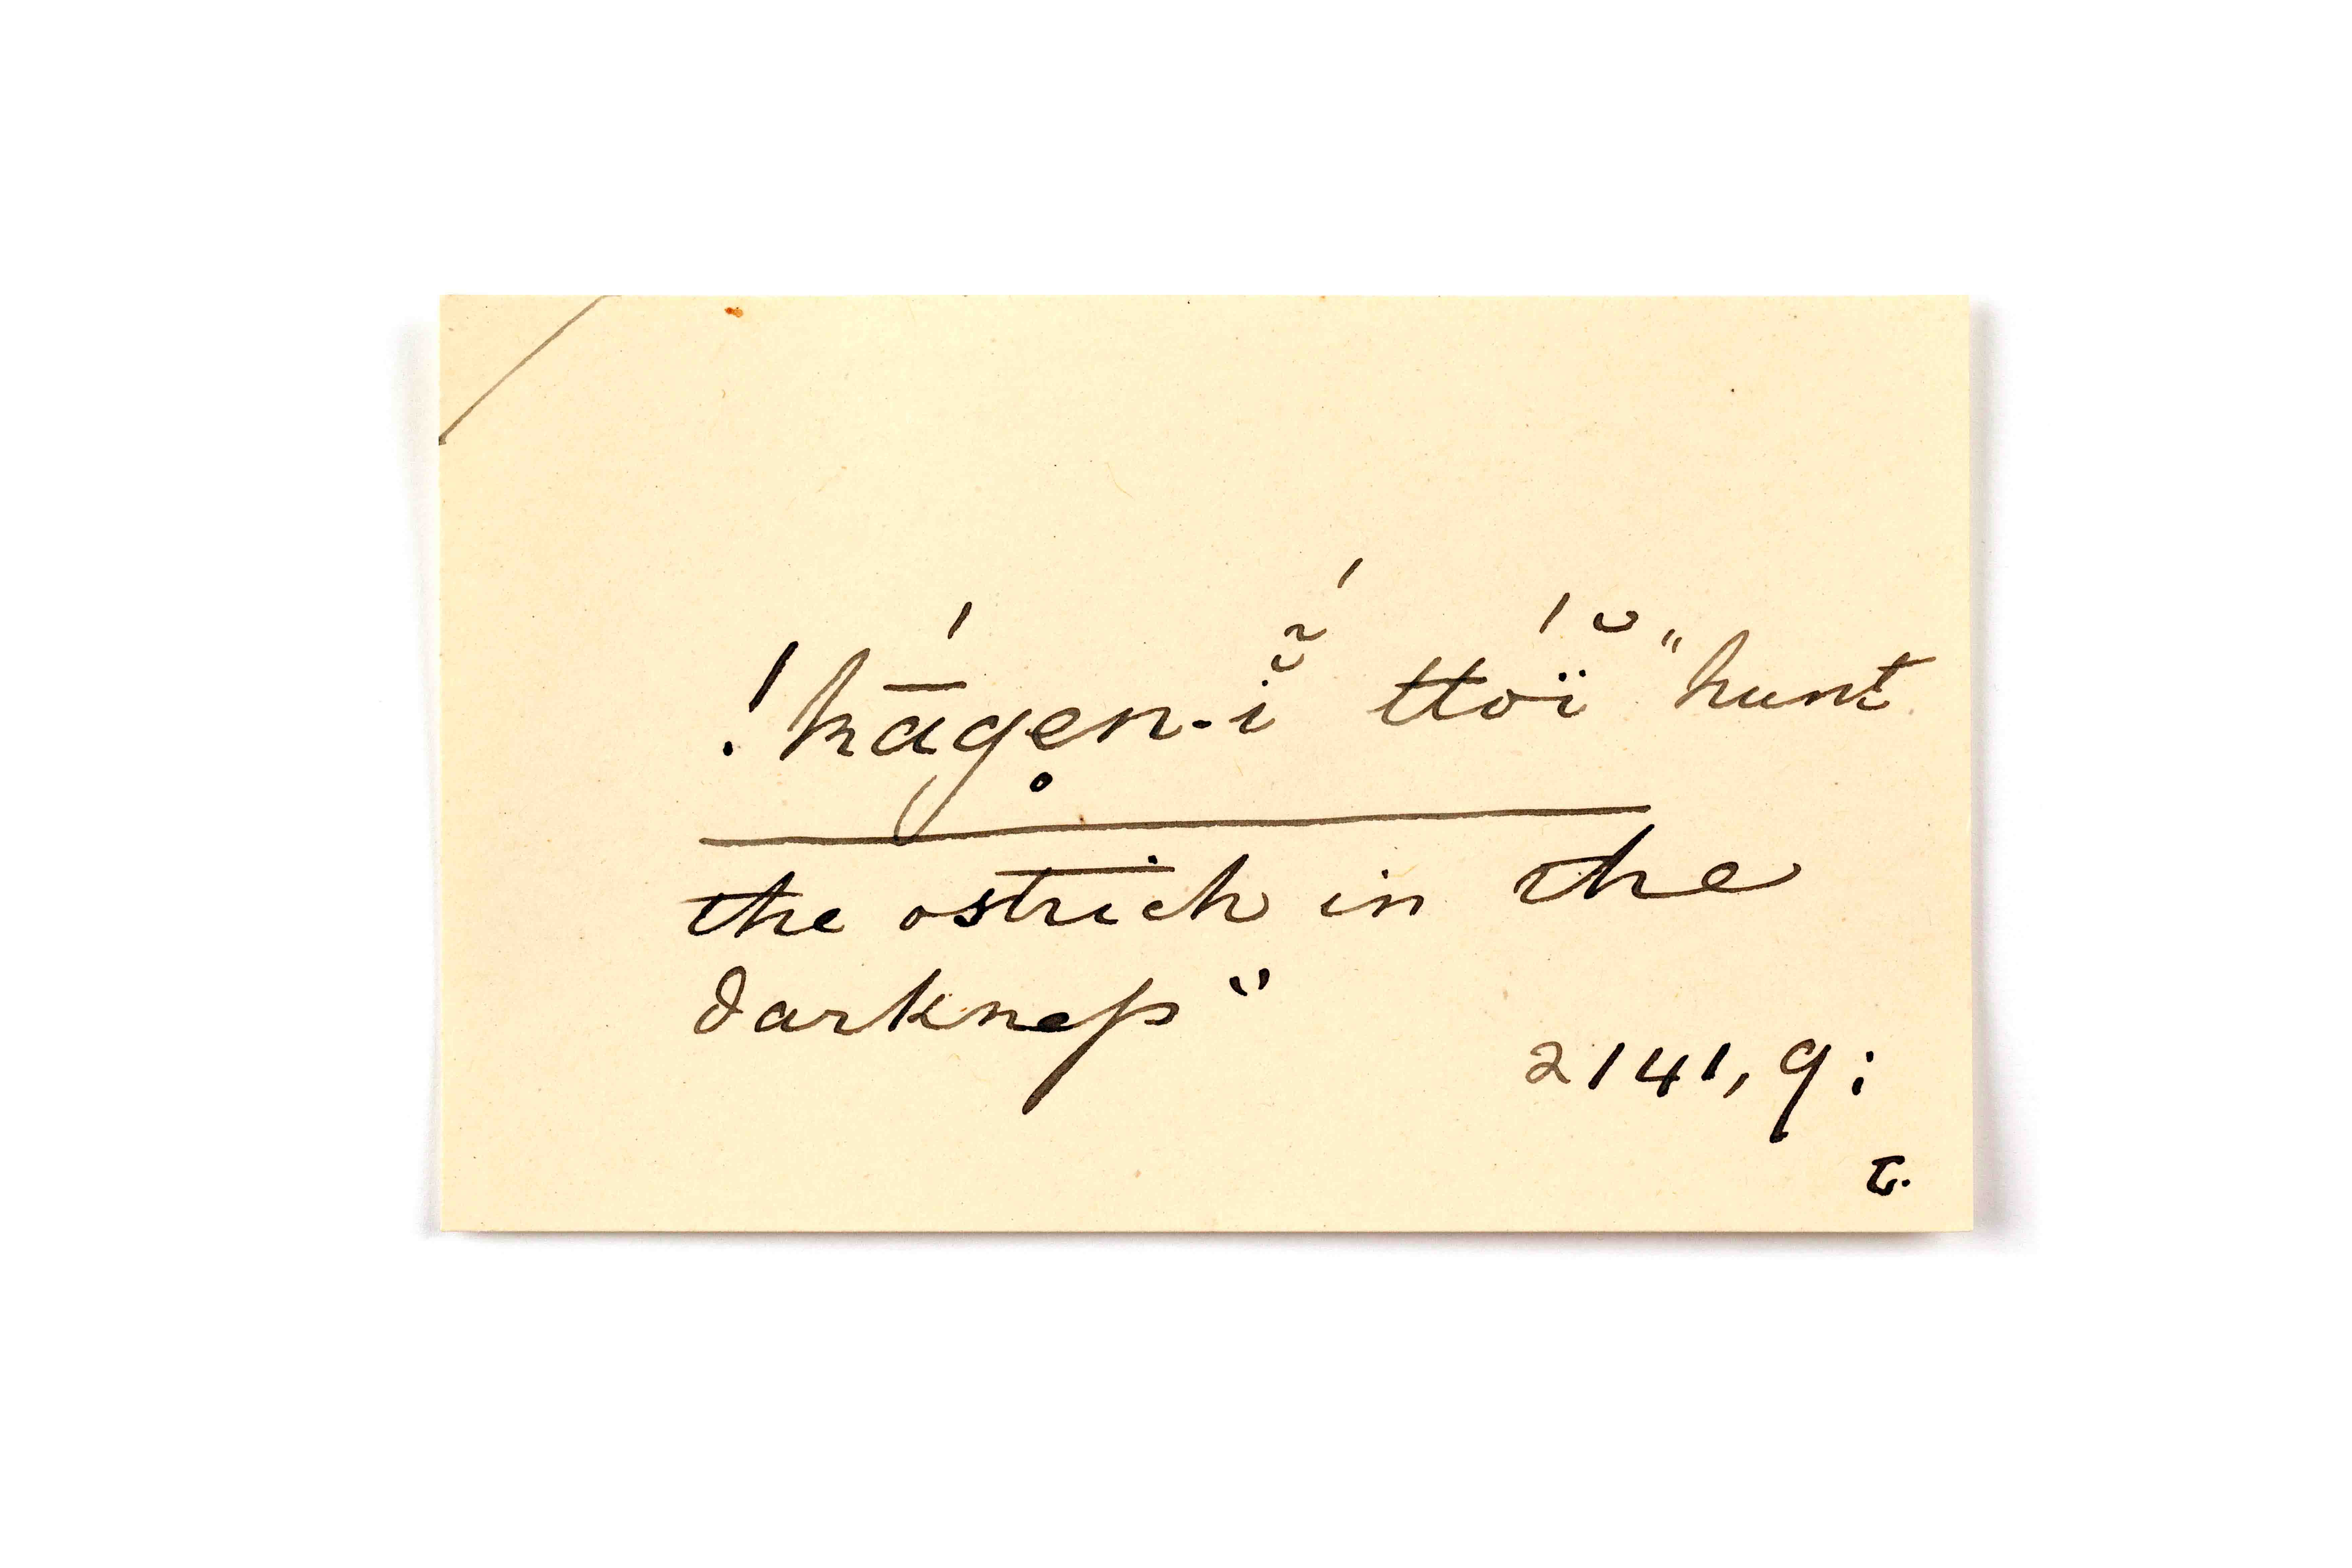 !kā́gẹn-ĩ̆́ ttóï̆ "hunt
the ostrich in the
darkneſs"
2141, 9;